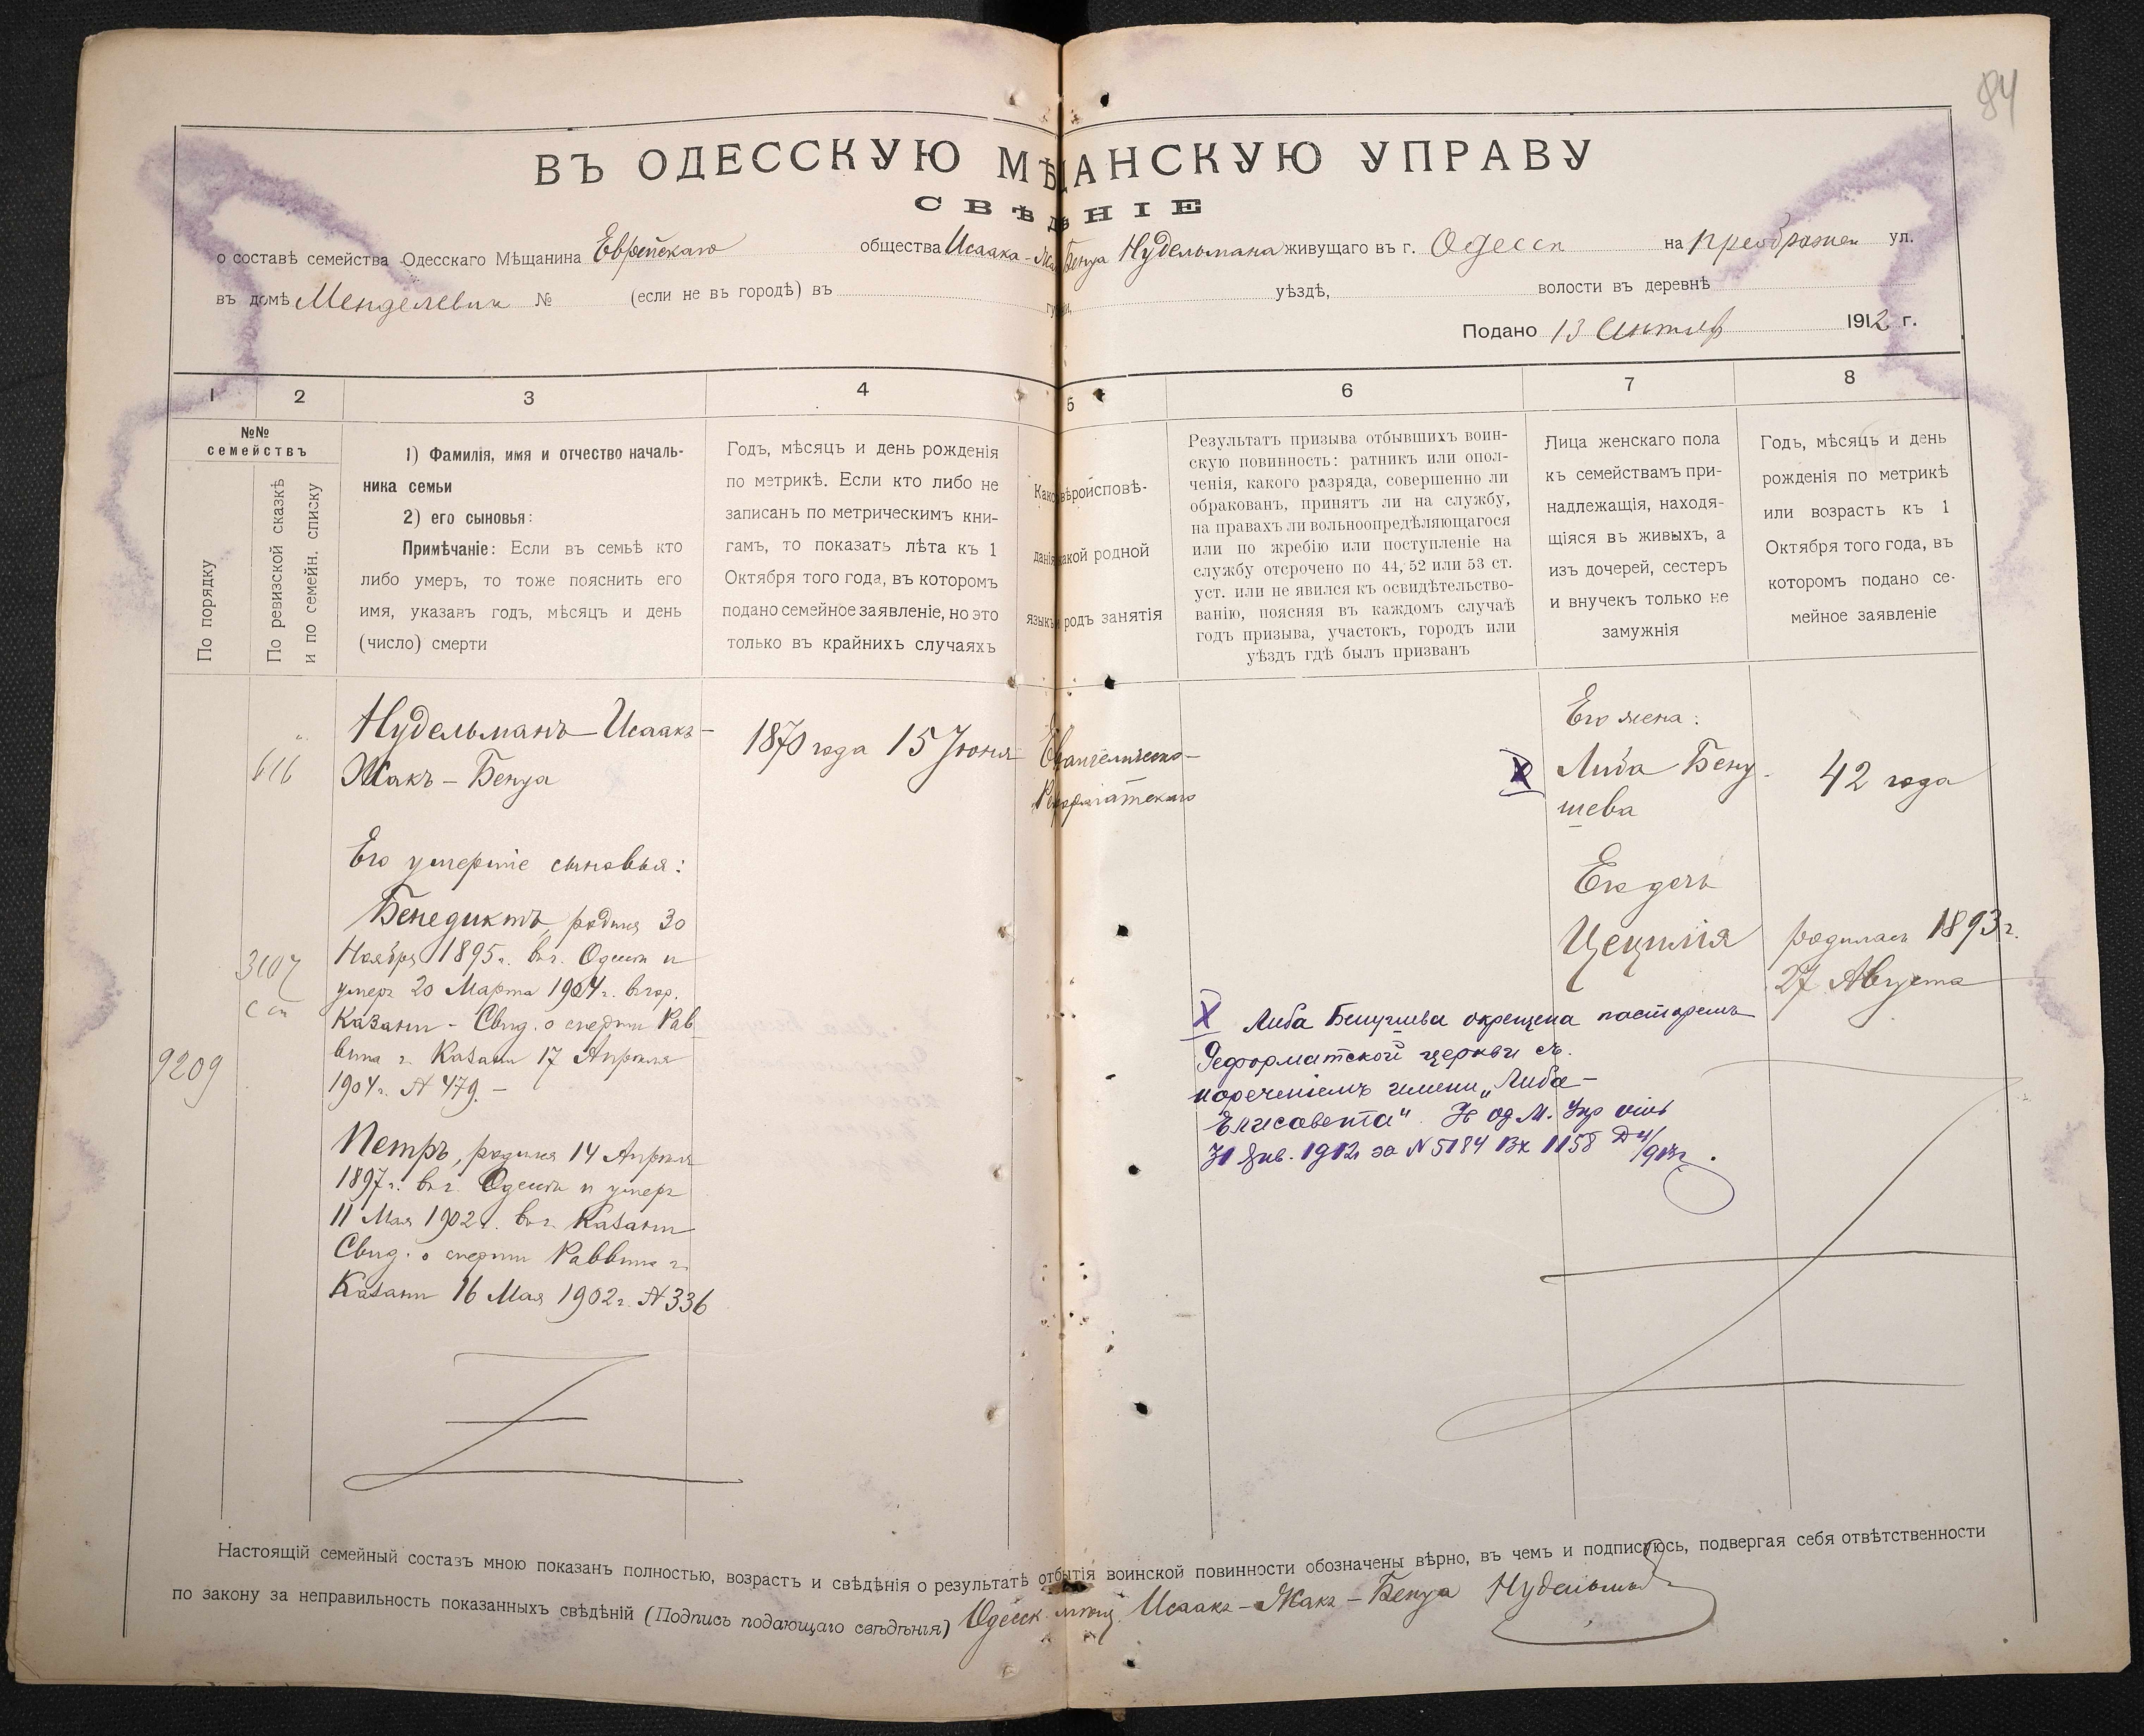 84
ВЪ ОДЕССКУЮ МѢЩАНСКУЮ УПРАВУ
СВѢДѢНІЕ
о составѣ семейства Одесскаго Мѣщанина Еврейскаго общества Исаака-Жака Бенуа Нудельмана живущаго въ г. Одесси на Преображен ул.
въ домѣ Менделевич № (если не въ городѣ) въ губерніи, уѣздѣ, волости въ деревнѣ
Подано 13 Сентяб 1912 г.
1 2 3 4 5 6 7 8
№№
семействъ
По порядку
По ревизской сказкѣ
и по семейн. списку
1) Фамилія, имя и отчество началь-
ника семьи
2) его сыновья:
Примѣчаніе: Если въ семьѣ кто
либо умеръ, то тоже пояснить его
имя, указавъ годъ, мѣсяцъ и день
(число) смерти
Годъ, мѣсяцъ и день рожденія
по метрикѣ. Если кто либо не
записанъ по метрическимъ кни-
гамъ, то показать лѣта къ 1
Октября того года, въ которомъ
подано семейное заявленіе, но это
только въ крайнихъ случаяхъ
Како вѣроисповѣ-
данія какой родной
языкъ и родъ занятія
Результатъ призыва отбывшихъ воин-
скую повинность: ратникъ или опол-
ченія, какого разряда, совершенно ли
обракованъ, принятъ ли на службу,
на правахъ ли вольноопредѣляющагося
или по жребію или поступленіе на
службу отсрочено по 44, 52 или 53 ст.
уст. или не явился къ освидѣтельство-
ванію, поясняя въ каждомъ случаѣ
годъ призыва, участокъ, городъ или
уѣздъ гдѣ былъ призванъ
Лица женскаго пола
къ семействамъ при-
надлежащія, находя-
щіяся въ живыхъ, а
изъ дочерей, сестеръ
и внучекъ только не
замужнія
Годъ, мѣсяцъ и день
рожденія по метрикѣ
или возрастъ къ 1
Октября того года, въ
которомъ подано се-
мейное заявленіе
616
3107
9209
Нудельманъ Исаакъ-
Жакъ-Бенуа
Его умершіе сыновья:
Бенедиктъ, родился 30
Ноября 1895 г. въ г. Одессѣ и
умеръ 20 Марта 1904 г. въ гор.
Казани - Свид. о смерти Рав-
вина г. Казани 17 Апрѣля
1904 г. № 479. -
Петръ, родился 14 Апрѣля
1897 г. въ г. Одессѣ и умеръ
11 Мая 1902 г. въ г. Казани
Свид. о смерти Раввина г.
Казани 16 Мая 1902 г. № 336
1870 года 15 Іюня
Евангелическо-
Реформатскаго
Его жена:
Х Либа Бену-
шева
42 года
Его дочь
Цецилія
родилась 1893 г.
27 Августа
Х Либа Бенушева окрещена пасторомъ
Реформатской церкви съ
нареченіемъ имени „Либа-
Елисавета“.
31 Янв. 1912 за № 5184 Вх 1158
Настоящій семейный составъ мною показанъ полностью, возрастъ и свѣдѣнія о результатѣ отбытія воинской повинности обозначены вѣрно, въ чемъ и подписуюсь, подвергая себя отвѣтственности
по закону за неправильность показанныхъ свѣдѣній (Подпись подающаго свѣдѣнія) Одесск. мѣщ. Исаакъ-Жакъ-Бенуа Нудельманъ